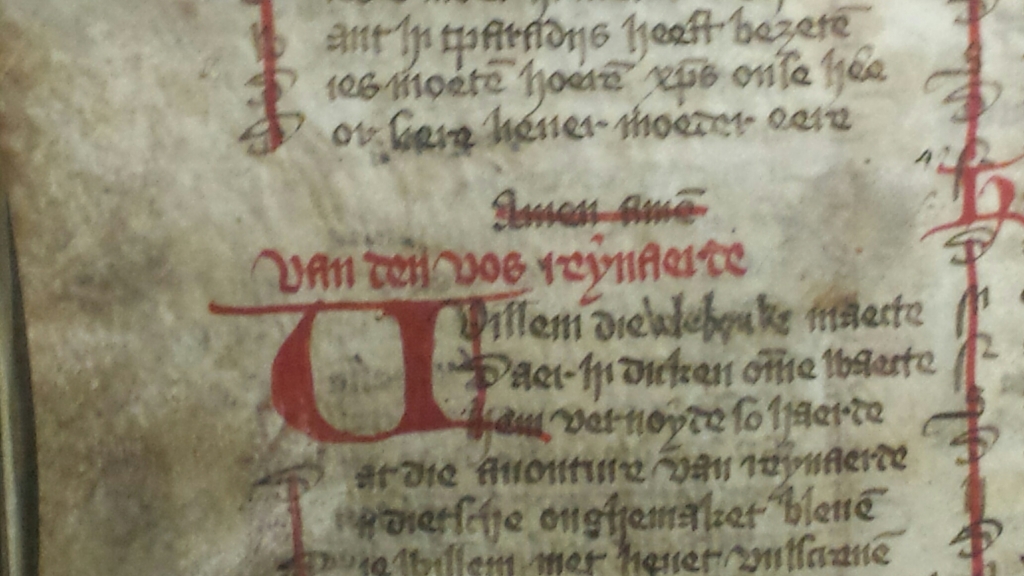 ant hi tparadijs heeft bezetē
ies moetē hoerē xp̄s onse hēe
or siere lieuer moeder eere
Amen amē
Van den vos reynaerde
Willem die vele bouke maecte
Daer hi dicken om̄e waecte
Hem vernoyde so haerde
at die auonture van reynaerde
n dietsche onghemaket bleuē
ie willem niet heuet vulscreuē